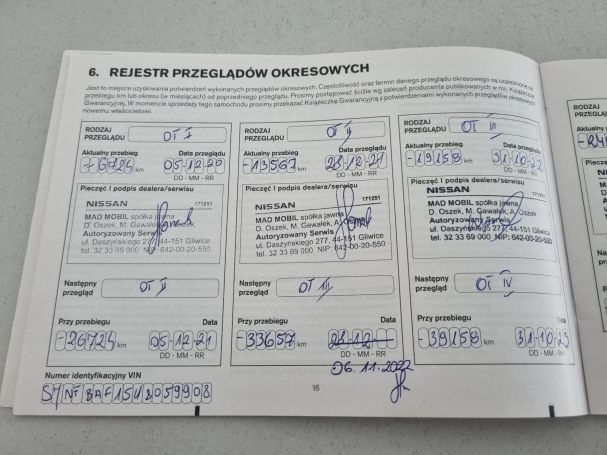 6. REJESTR PRZEGLĄDÓW OKRESOWYCH
Jest to miejsce uzyskiwania potwierdzeń wykonanych przeglądów okresowych. Częstotliwość oraz termin danego przeglądu okresowego są uzależnione od
przebiegu km lub okresu (w miesiącach) od poprzedniego przeglądu. Prosimy postępować ściśle wg zaleceń producenta publikowanych w nin. Książeczce
Gwarancyjnej. W momencie sprzedaży tego samochodu prosimy przekazać Książeczkę Gwarancyjną z potwierdzeniami wykonanych przeglądów okresowych
nowemu właścicielowi.
RODZAJ PRZEGLĄDU OT I
Aktualny przebieg Data przeglądu
-6724 km 05-12-20
DD - MM - RR
Pieczęć i podpis dealera/serwisu
NISSAN 171251
MAD MOBIL spółka jawna
D. Oszek, M. Gawałek, A. Oszek
Autoryzowany Serwis
ul. Daszyńskiego 277, 44-151 Gliwice
tel. 32 33 69 000 NIP: 642-00-20-550
Następny przegląd OT II
Przy przebiegu Data
-26724 km 05-12-21
DD - MM - RR
RODZAJ PRZEGLĄDU OT II
Aktualny przebieg Data przeglądu
-13567 km 28-12-21
DD - MM - RR
Pieczęć i podpis dealera/serwisu
NISSAN 171251
MAD MOBIL spółka jawna
D. Oszek, M. Gawałek, A. Oszek
Autoryzowany Serwis
ul. Daszyńskiego 277, 44-151 Gliwice
tel. 32 33 69 000 NIP: 642-00-20-550
Następny przegląd OT III
Przy przebiegu Data
-33657 km 28-12-
DD - MM - RR
06.11.2022
RODZAJ PRZEGLĄDU OT III
Aktualny przebieg Data przeglądu
-19158 km 31-10-22
DD - MM - RR
Pieczęć i podpis dealera/serwisu
NISSAN 171251
MAD MOBIL spółka jawna
D. Oszek, M. Gawałek, A. Oszek
Autoryzowany Serwis
ul. Daszyńskiego 277, 44-151 Gliwice
tel. 32 33 69 000 NIP: 642-00-20-550
Następny przegląd OT IV
Przy przebiegu Data
-39158 km 31-10-23
DD - MM - RR
Numer identyfikacyjny VIN
16